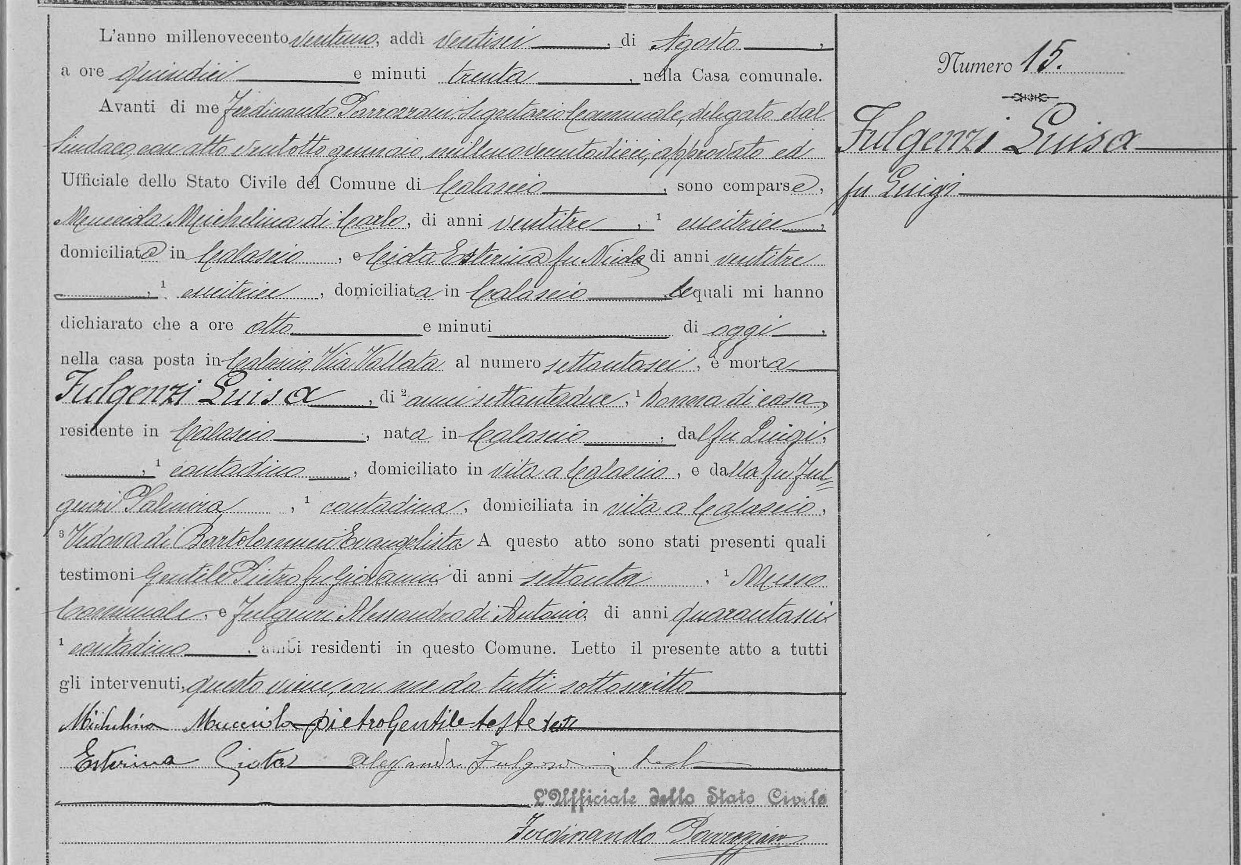 L'anno millenovecento ventuno, addì ventisei, di Agosto,
a ore quindici e minuti trenta, nella Casa comunale.
Avanti di me Ferdinando Parrozzani, Segretario Comunale, delegato dal
Sindaco, con atto ventotto gennaio millenovecentodieci, approvato ed
Ufficiale dello Stato Civile del Comune di Calascio, sono comparse,
Mucciola Michelina di Carlo, di anni ventitre, ¹ cucitrice,
domiciliata in Calascio, e Ciota Esterina fu Nicola di anni ventitre
, ¹ cucitrice, domiciliata in Calascio le quali mi hanno
dichiarato che a ore otto e minuti di oggi,
nella casa posta in Calascio Via Vallata al numero settantasei, è morta
Fulgenzi Luisa, di ² anni settantadue, ¹ donna di casa,
residente in Calascio, nata in Calascio, dal fu Luigi,
, ¹ contadino, domiciliato in vita a Calascio, e dalla fu Ful-
genzi Palmira, ¹ contadina, domiciliata in vita a Calascio,
³ Vedova di Bartolomucci Evangelista A questo atto sono stati presenti quali
testimoni Gentile Pietro fu Giovanni di anni settanta, ¹ Messo
Comunale, e Fulgenzi Alessandro di Antonio, di anni quarantasei
¹ contadino, ambi residenti in questo Comune. Letto il presente atto a tutti
gli intervenuti, questo viene, con me da tutti sottoscritto
Michelina Mucciola pietro Gentile teste
Esterina Ciota Fulgenzi
L'Ufficiale dello Stato Civile
Ferdinando Parrozzani
Numero 15.
Fulgenzi Luisa
fu Luigi